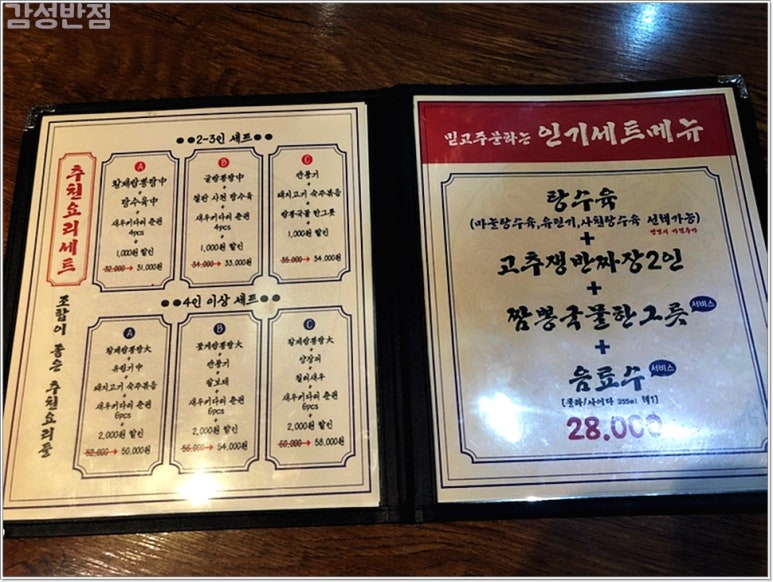 감성반점
추천요리세트
조합이 좋은 추천요리들
●●2-3인 세트●●
A
황제짬뽕탕中
+
탕수육中
+
새우키다리 춘권
4pcs
+
1,000원 할인
32,000→31,000원
B
굴짬뽕탕中
+
철판 사천 탕수육
+
새우키다리 춘권
4pcs
+
1,000원 할인
34,000→33,000원
C
깐풍기
+
돼지고기 숙주볶음
+
짬뽕국물 한그릇
+
1,000원 할인
35,000→34,000원
●●4인 이상 세트●●
A
황제짬뽕탕大
+
유린기中
+
돼지고기 숙주볶음
+
새우키다리 춘권
6pcs
+
2,000원 할인
52,000→50,000원
B
꽃게짬뽕탕大
+
깐풍기
+
팔보채
+
새우키다리 춘권
6pcs
+
2,000원 할인
56,000→54,000원
C
황제짬뽕탕大
+
양장피
+
칠리새우
+
새우키다리 춘권
6pcs
+
2,000원 할인
60,000→58,000원
믿고주문하는 인기세트메뉴
탕수육
(마늘탕수육,유린기,사천탕수육 선택가능)
변경시 가격추가
+
고추쟁반짜장2인
+
짬뽕국물한그릇 서비스
+
음료수 서비스
[콜라/사이다 355ml 택1]
28,000